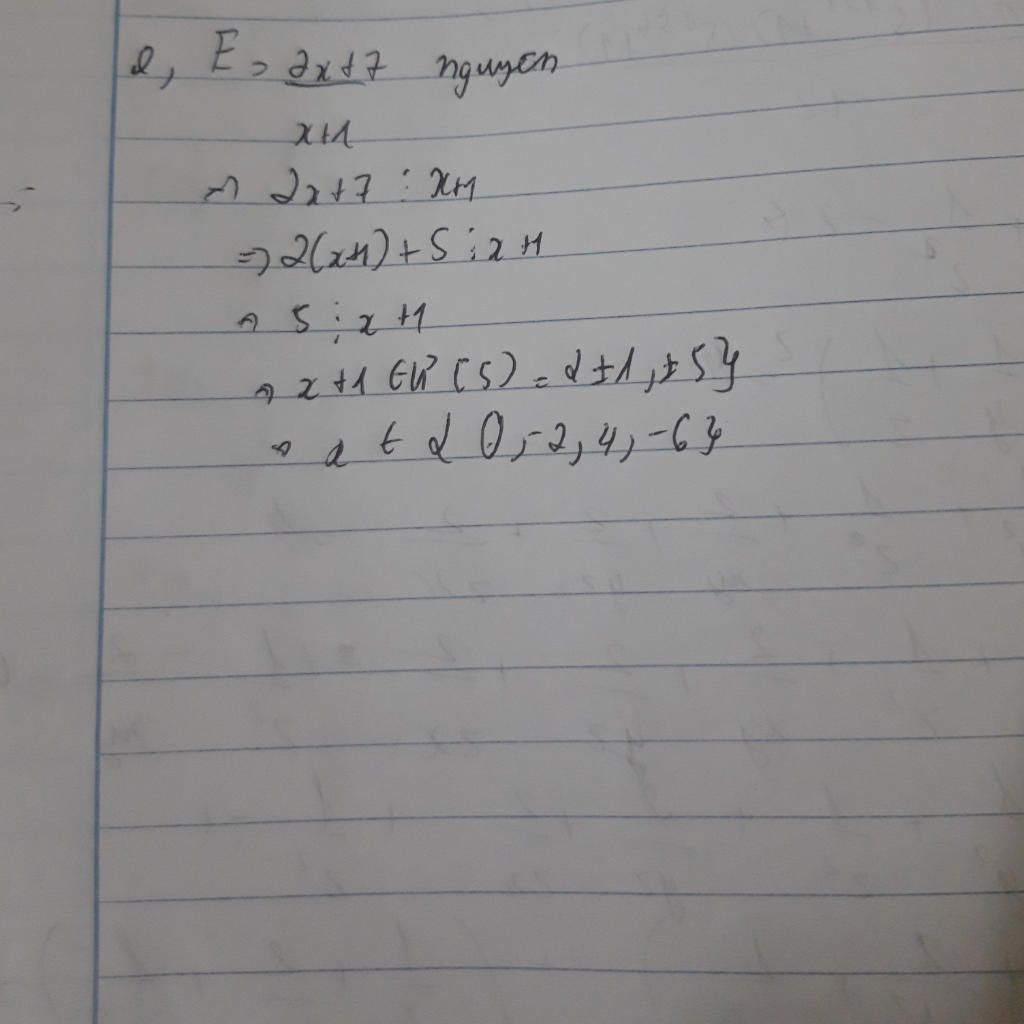 e, E = 2x+7 nguyen
x+1
=> 2x+7 ⋮ x+1
=> 2(x+1)+5 ⋮ x+1
=> 5 ⋮ x+1
=> x+1 ∈ Ư(5) = {±1,±5}
=> x ∈ {0,-2,4,-6}